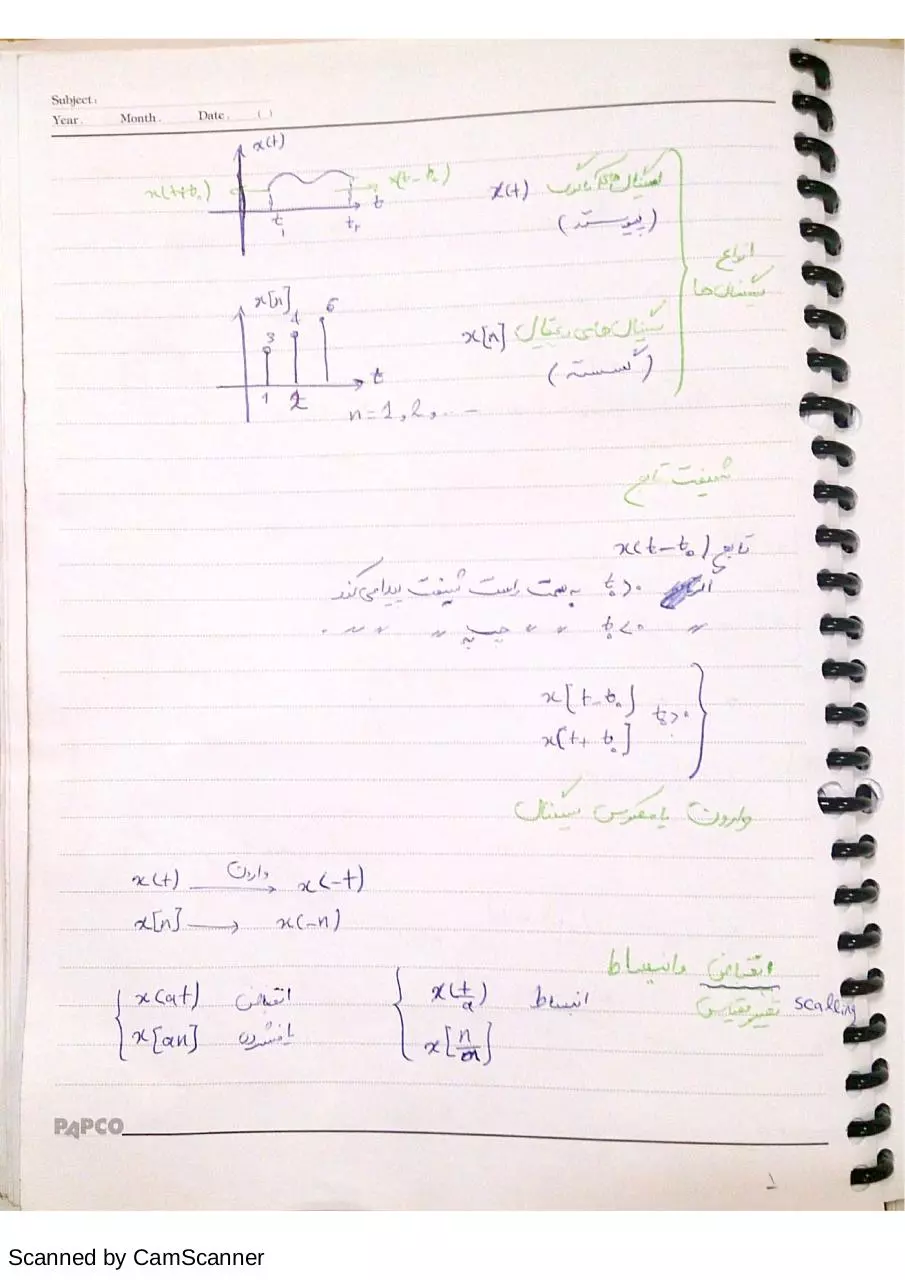 Subject:
Year. Month. Date. ( )
x(t)
x(t+t₀) x(t-t₀)
t₁ t₂ t
سیگنال های آنالوگ x(t)
(پیوسته)
انواع
سیگنال ها
سیگنال های دیجیتال x[n]
(گسسته)
x[n]
3 4 6
1 2 t
n=1,2,...
شیفت تابع
تابع x(t-t₀)
اگر t₀>0 به سمت راست شیفت پیدا می کند
" t₀<0 " " چپ " " " "
x[t-t₀]
x[t+t₀] t₀>0
وارون یا معکوس سیگنال
x(t) وارون → x(-t)
x[n] → x(-n)
انقباض و انبساط
تغییر مقیاس scaling
x(t/a) انبساط
x[n/a]
x(at) انقباض
x[an] یا فشردن
PAPCO
۱
Scanned by CamScanner